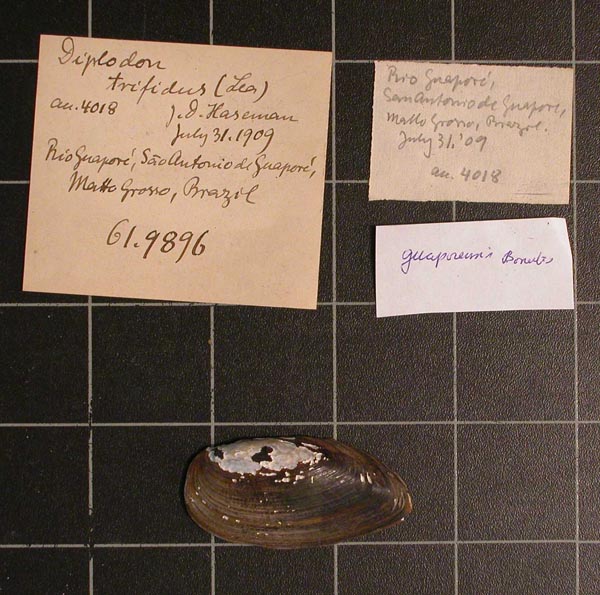 Diplodon
trifidus (Lea)
an. 4018 J. D. Haseman
July 31. 1909
Rio Guaporé, São Antonio de Guaporé,
Matto Grosso, Brazil
61.9896
Rio Guaporé,
San Antonio de Guaporé,
Matto Grosso, Brazil.
July 31. '09
an. 4018
guaporensis Bonetto